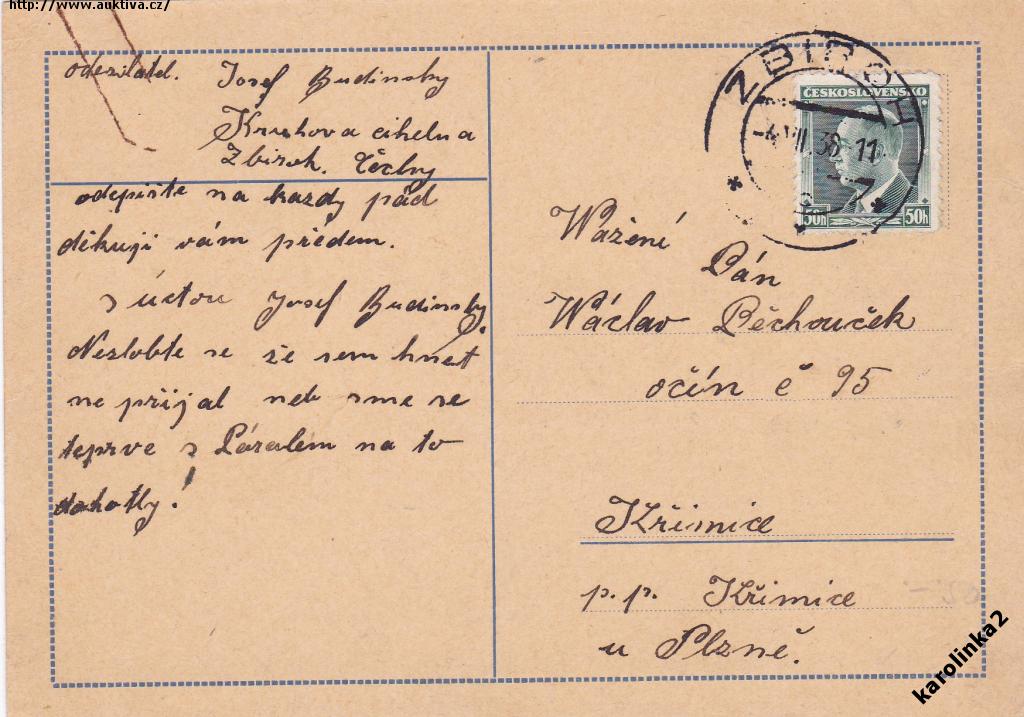 http://www.auktiva.cz/
odezilatel. Josef Budinsky
Kruhova cihelna
Zbiroh. Čechy
odepište na kazdy pád
děkuji vám předem.
s úctou Josef Budinsky.
Nezlobte se že sem hnet
ne přijal neb sme se
teprve s na to
dohotly!
ZBIROH
-4.VII.38-11
ČESKOSLOVENSKO
50h 50h
Wážení
Pán
Wáclav Běchouček
očín č 95
Křimice
p.p. Křimice
u Plzně.
karolinka2